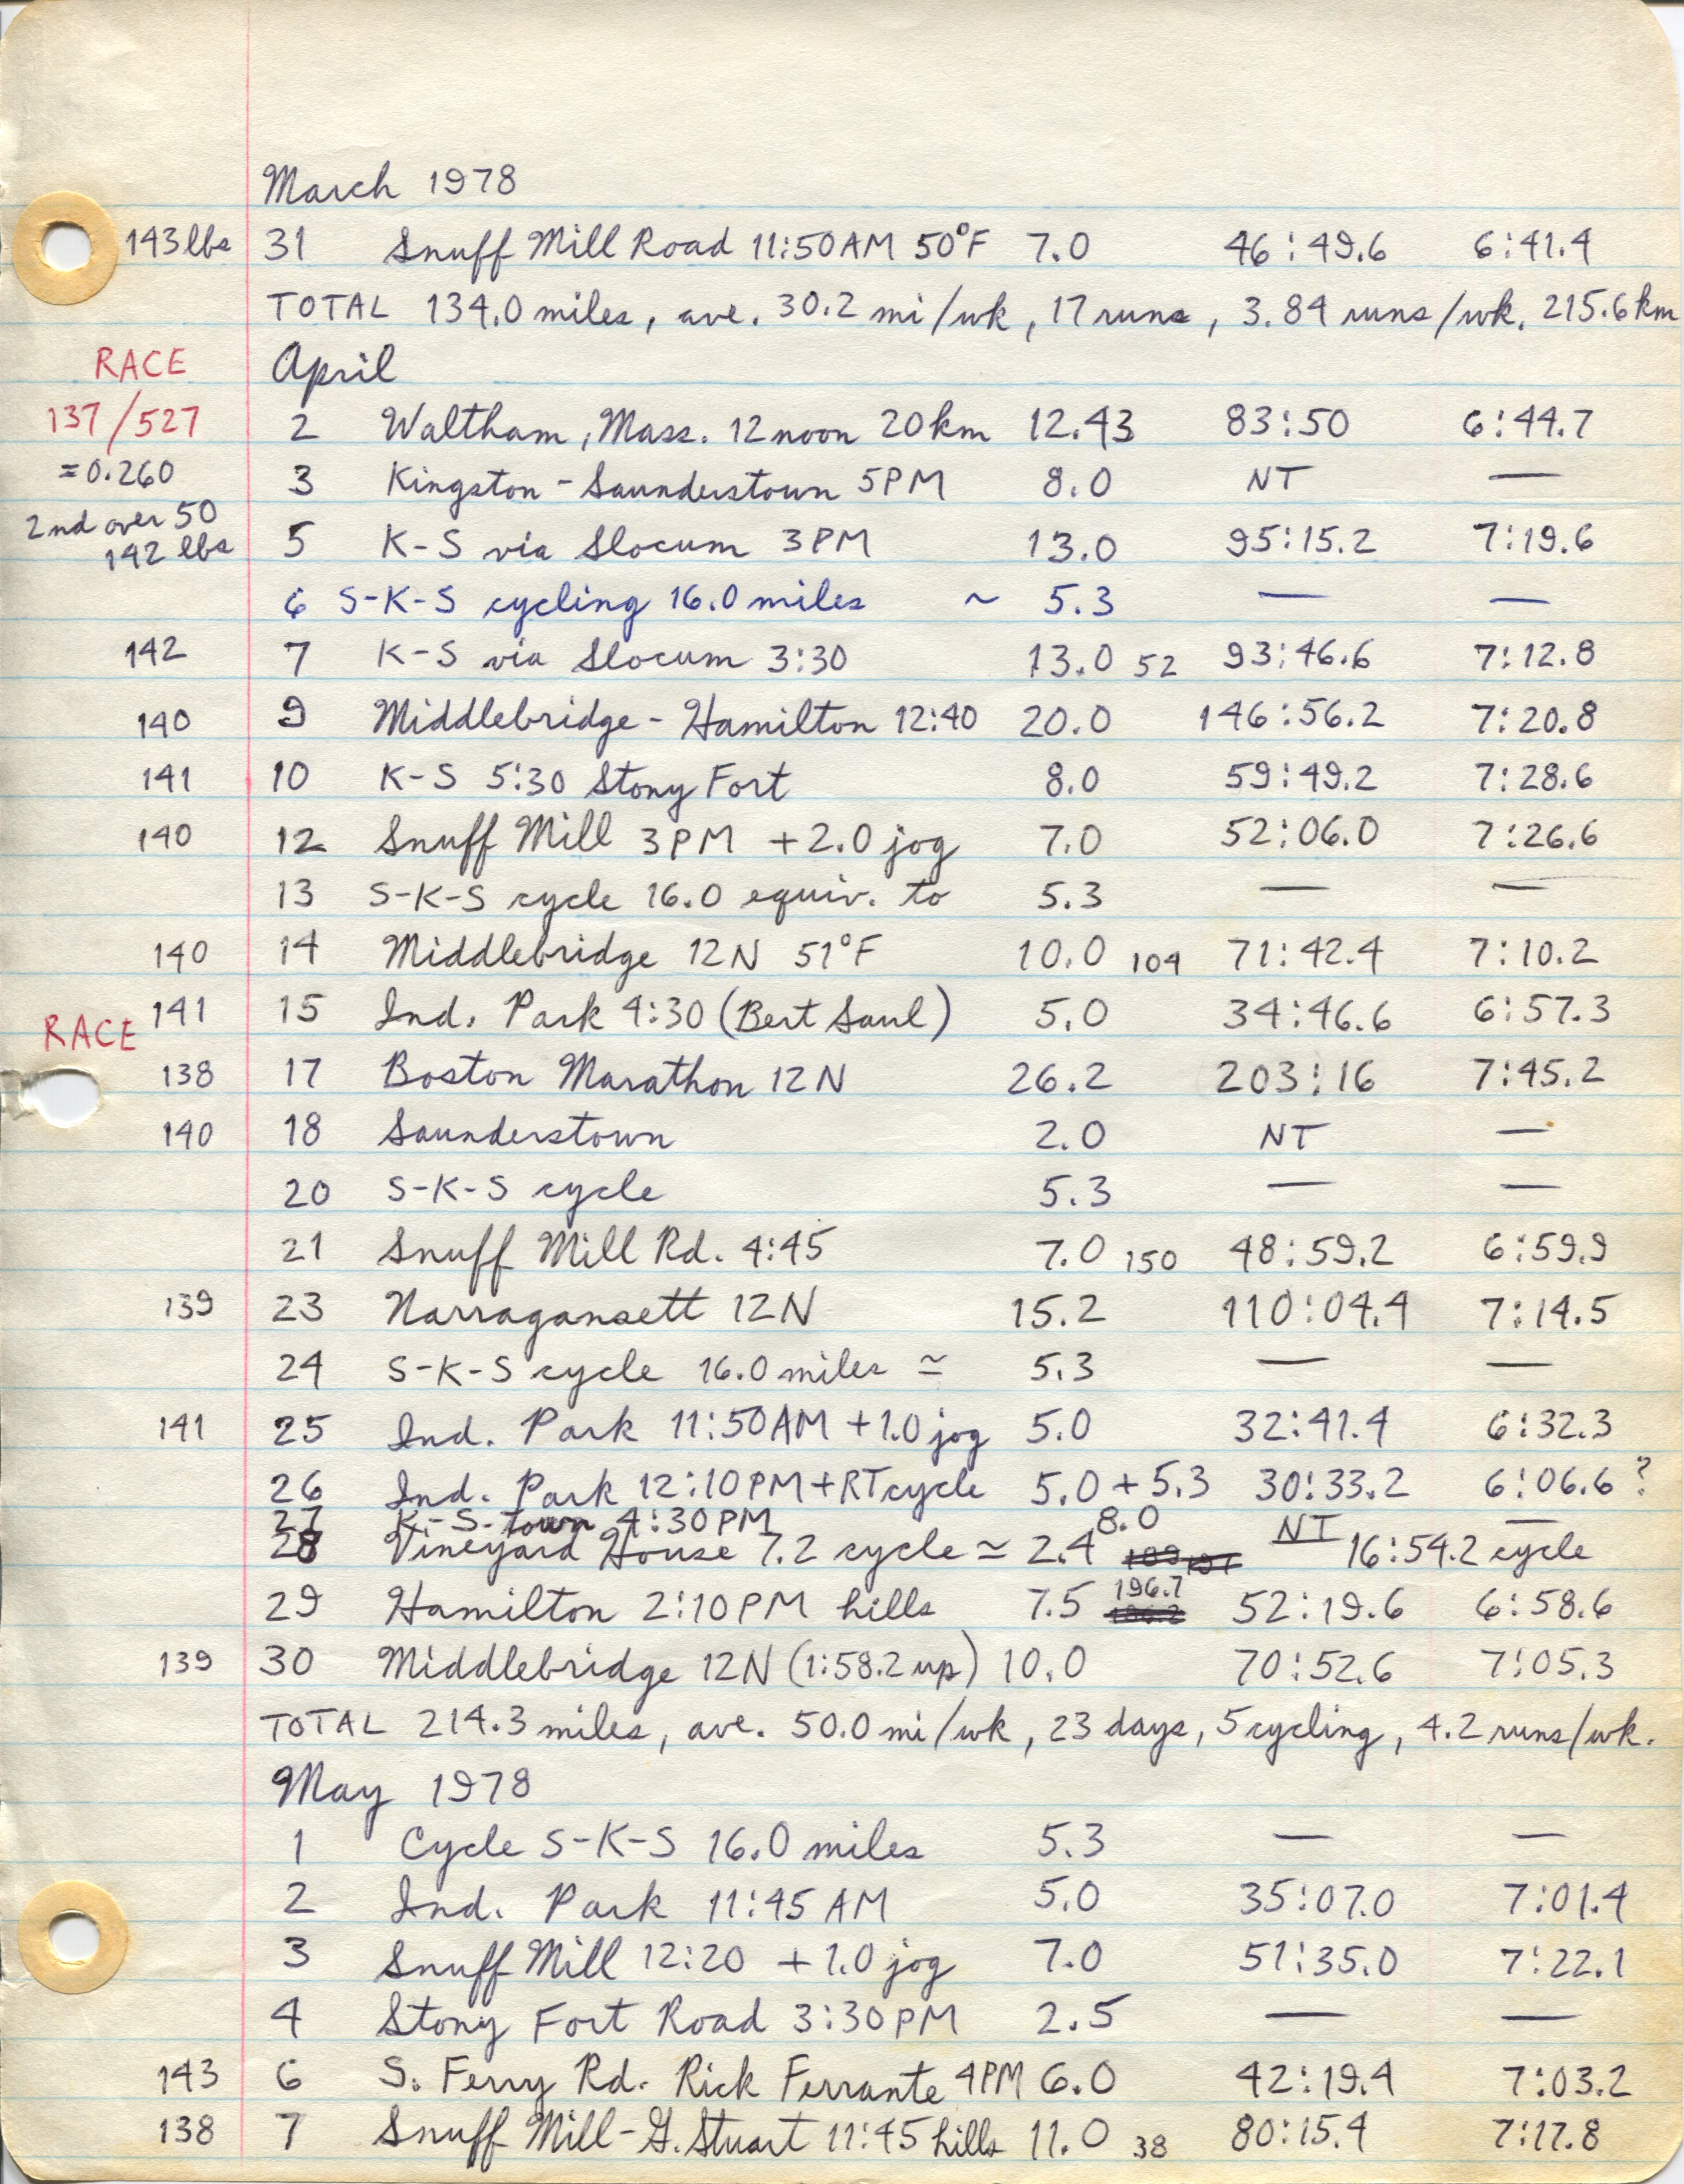 March 1978
143 lbs 31 Snuff Mill Road 11:50 AM 50°F 7.0 46:49.6 6:41.4
TOTAL 134.0 miles, ave. 30.2 mi/wk, 17 runs, 3.84 runs/wk. 215.6 km
RACE April
137/527 2 Waltham, Mass. 12 noon 20 km 12.43 83:50 6:44.7
=0.260 3 Kingston - Saunderstown 5PM 8.0 NT —
2nd over 50
142 lbs 5 K-S via Slocum 3 PM 13.0 95:15.2 7:19.6
6 S-K-S cycling 16.0 miles ~ 5.3 — —
142 7 K-S via Slocum 3:30 13.0 52 93:46.6 7:12.8
140 9 Middlebridge - Hamilton 12:40 20.0 146:56.2 7:20.8
141 10 K-S 5:30 Stony Fort 8.0 59:49.2 7:28.6
140 12 Snuff Mill 3PM +2.0 jog 7.0 52:06.0 7:26.6
13 S-K-S cycle 16.0 equiv. to 5.3 — —
140 14 Middlebridge 12N 51°F 10.0 104 71:42.4 7:10.2
141 15 Ind. Park 4:30 (Bert Saul) 5.0 34:46.6 6:57.3
RACE
138 17 Boston Marathon 12N 26.2 203:16 7:45.2
140 18 Saunderstown 2.0 NT —
20 S-K-S cycle 5.3 — —
21 Snuff Mill Rd. 4:45 7.0 150 48:59.2 6:59.9
139 23 Narragansett 12N 15.2 110:04.4 7:14.5
24 S-K-S cycle 16.0 miles ≃ 5.3 — —
141 25 Ind. Park 11:50 AM +1.0 jog 5.0 32:41.4 6:32.3
26 Ind. Park 12:10 PM + RT cycle 5.0 + 5.3 30:33.2 6:06.6 ?
27 K-S-town 4:30 PM 8.0 NT —
28 Vineyard House 7.2 cycle ≃ 2.4 16:54.2 cycle
29 Hamilton 2:10 PM hills 7.5 196.7 52:19.6 6:58.6
139 30 Middlebridge 12N (1:58.2 up) 10.0 70:52.6 7:05.3
TOTAL 214.3 miles, ave. 50.0 mi/wk, 23 days, 5 cycling, 4.2 runs/wk.
May 1978
1 Cycle S-K-S 16.0 miles 5.3 — —
2 Ind. Park 11:45 AM 5.0 35:07.0 7:01.4
3 Snuff Mill 12:20 +1.0 jog 7.0 51:35.0 7:22.1
4 Stony Fort Road 3:30 PM 2.5 — —
143 6 S. Ferry Rd. Rick Ferrante 4PM 6.0 42:19.4 7:03.2
138 7 Snuff Mill - G. Stuart 11:45 hills 11.0 38 80:15.4 7:17.8